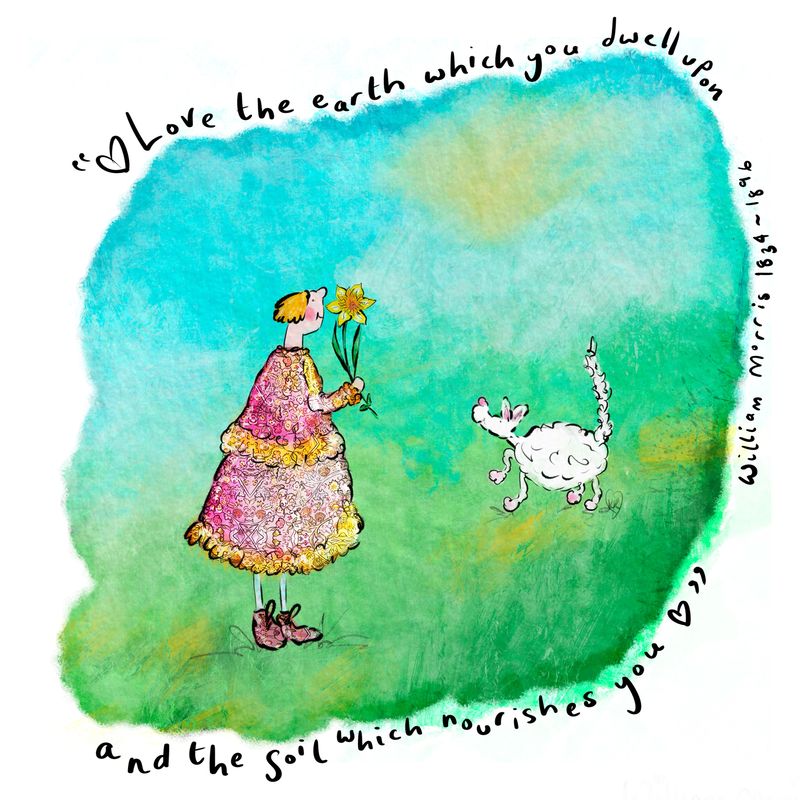 "♡ Love the earth which you dwell upon
and the soil which nourishes you ♡"
William Morris 1834~1896